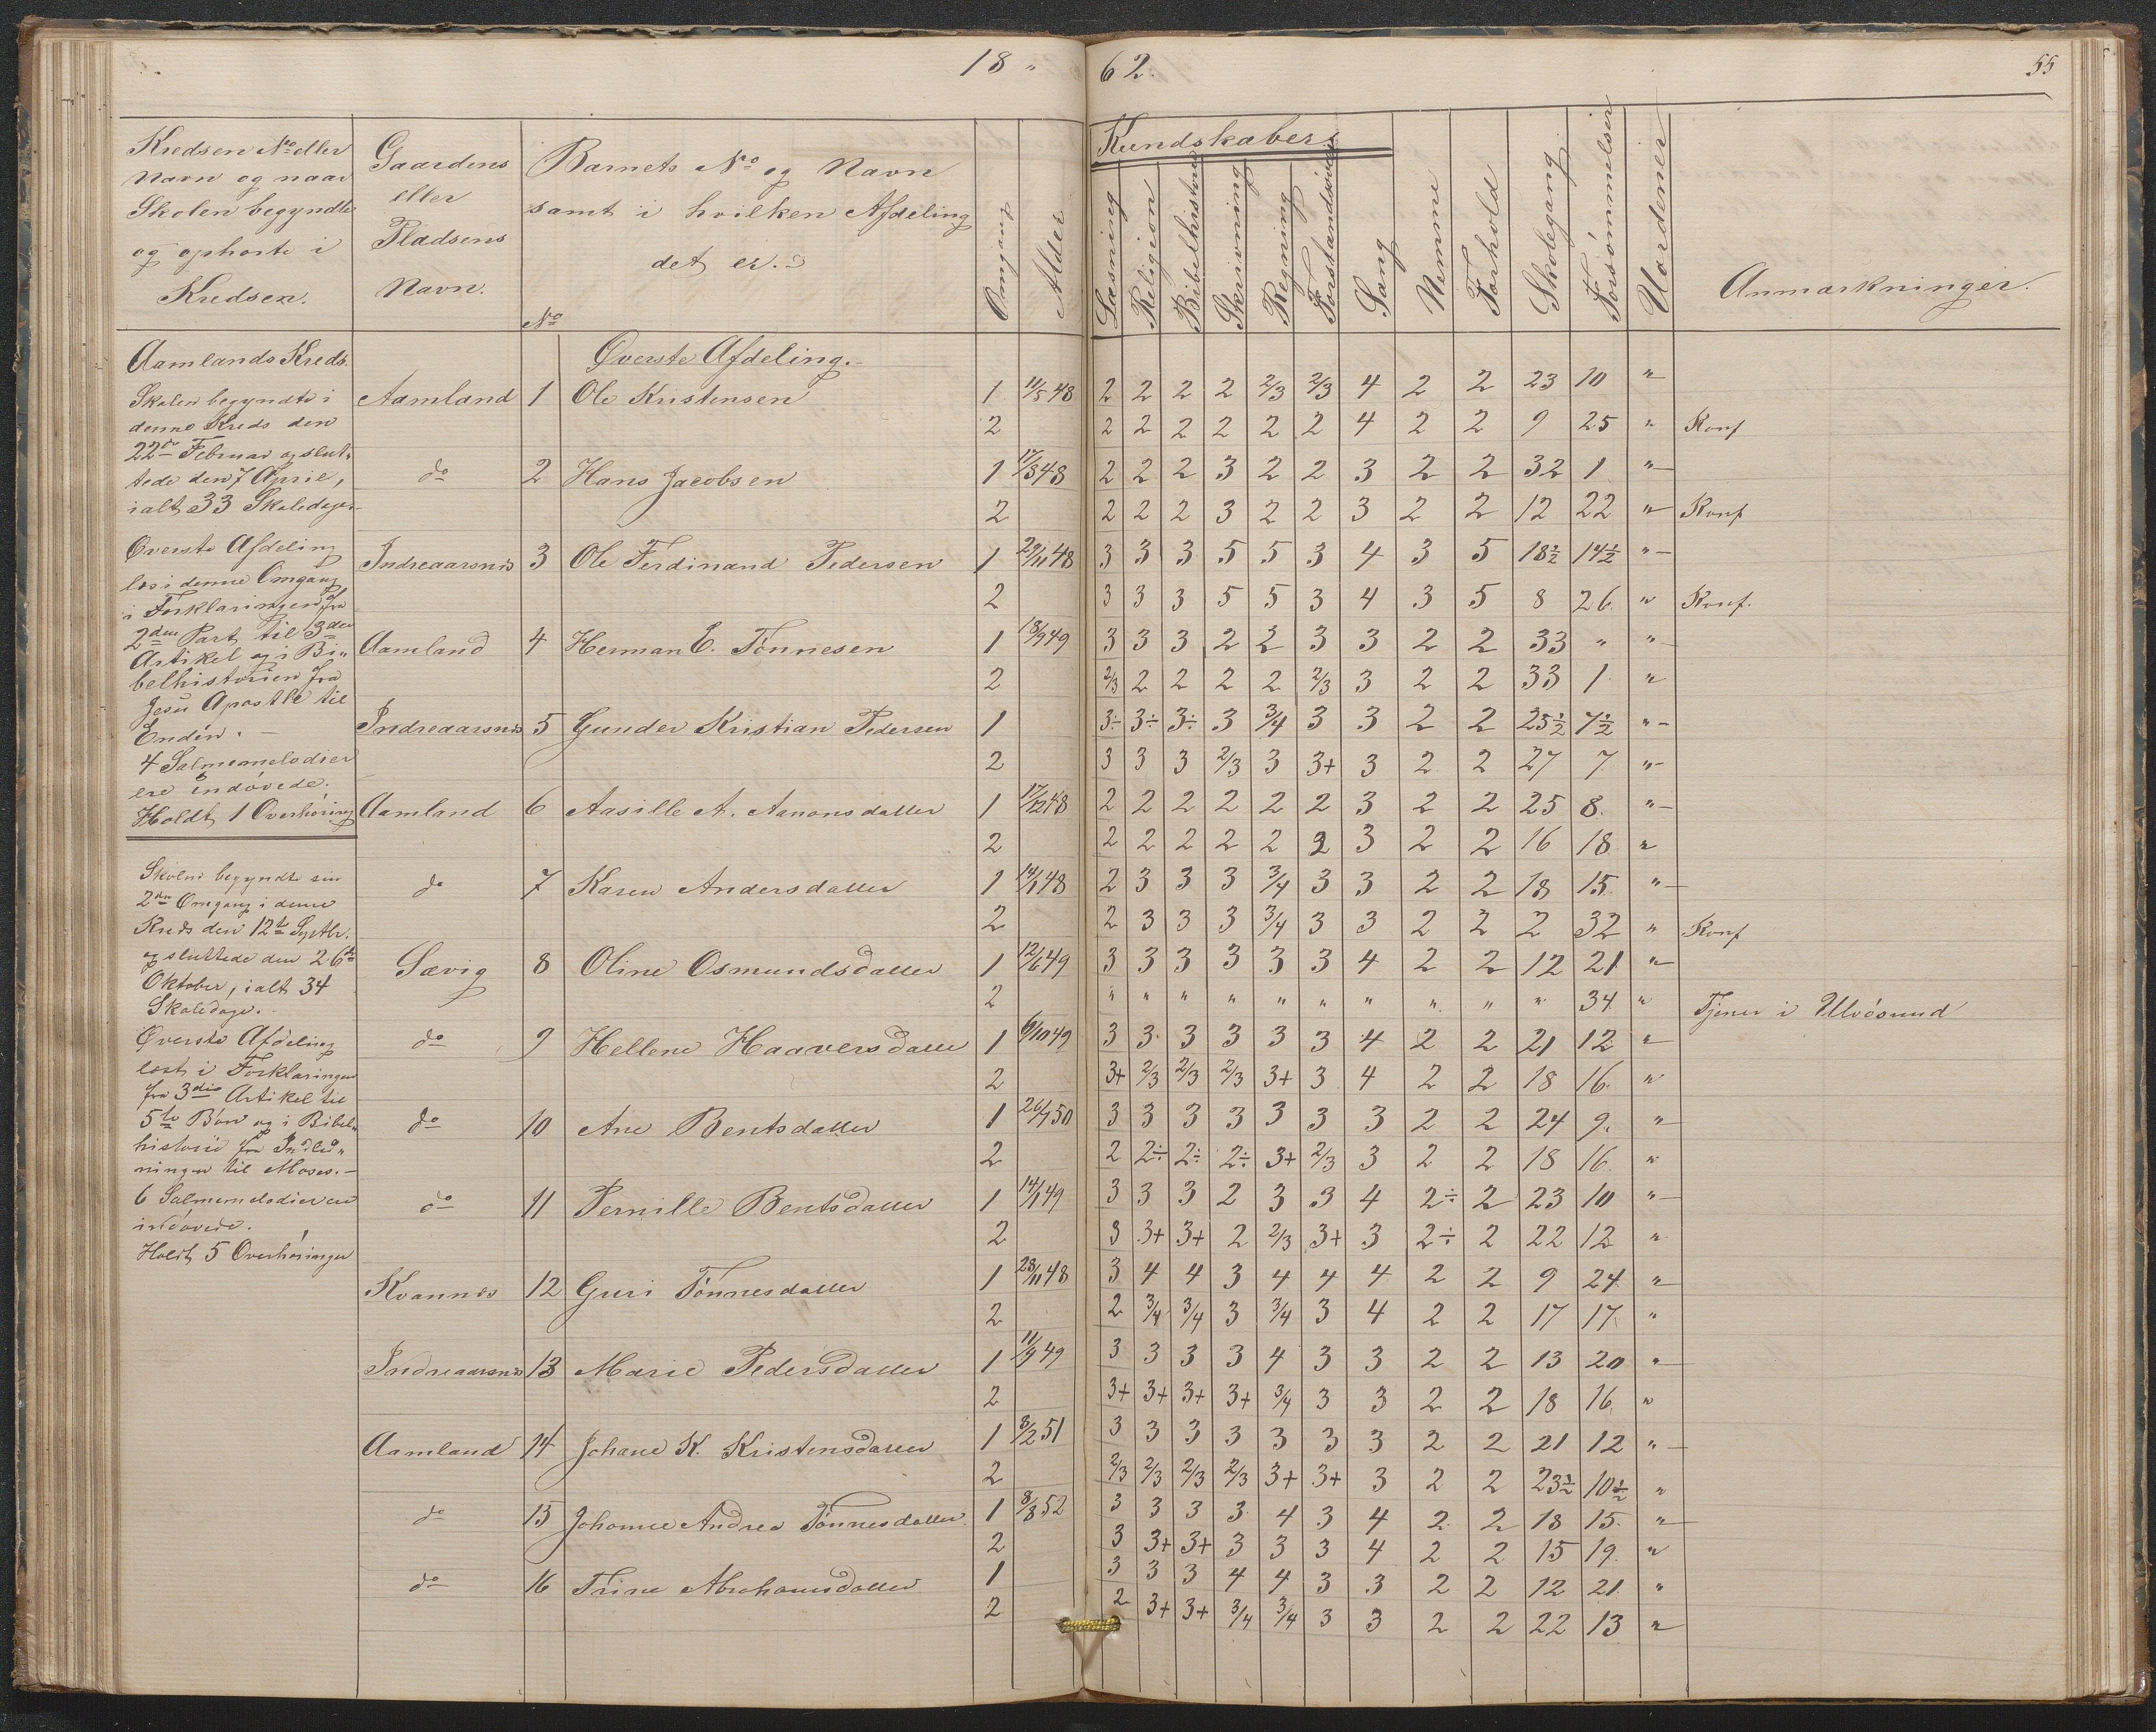 18 " 62.
55
Kredsen No eller
Navn og naar
Skolen begyndte
og ophørte i
Kredsen.
Gaardens
eller
Pladsens
Navn.
Barnets No og Navn
samt i hvilken Afdeling
det er.
No
Omgang
Alder
Kundskaber
Læsning
Religion
Bibelhistorie
Skrivning
Regning
Forstandsøvelse
Sang
Nemme
Forhold
Skolegang
Forsömmelser
Uordener
Anmærkninger.
Aamlands Kreds.
Skolen begyndte i
denne Kreds den
22de Februar og slut,
tede den 7 April,
ialt 33 Skoledage
Øverste Afdeling
læs i denne Omgang
i Forklaringen fra
2den Part til 3den
Artikel og i Bi„
belhistorien fra
Jesu Apostle til
Enden. —
4 Salmemelodier
ere indövede.
Holdt 1 Overhöring
Skolen begyndte sin
2den Omgang i denne
Kreds den 12te Septbr.
og sluttede den 26de
Oktober, ialt 34
Skoledage.
Øverste Afdeling
læst i Forklaringen
fra 3die Artikel til
5te Bön og i Bibel„
historie fra Indled„
ningen til Moses. —
6 Salmemelodier ere
indövede.
Holdt 5 Overhöringer
Øverste Afdeling.
Aamland 1 Ole Kristensen 1 11/5 48 2 2 2 2 2/3 2/3 4 2 2 23 10 "
2 2 2 2 2 2 2 4 2 2 9 25 " Konf
do 2 Hans Jacobsen 1 17/8 48 2 2 2 3 2 2 3 2 2 32 1 "
2 2 2 2 3 2 2 3 2 2 12 22 " Konf
Indreaarsnes 3 Ole Ferdinand Pedersen 1 29/11 48 3 3 3 5 5 3 4 3 5 18½ 14½ "
2 3 3 3 5 5 3 4 3 5 8 26. " Konf.
Aamland 4 Herman E. Tönnesen 1 18/9 49 3 3 3 2 2 3 3 2 2 33 " "
2 2/3 2 2 2 2 2/3 3 2 2 33 1. "
Indreaarsnes 5 Gunder Kristian Pedersen 1 3÷ 3÷ 3÷ 3 3/4 3 3 2 2 25½ 7½ "
2 3 3 3 2/3 3 3+ 3 2 2 27 7. "
Aamland 6 Aasille A. Aanonsdatter 1 17/12 48 2 2 2 2 2 2 3 2 2 25 8. "
2 2 2 2 2 2 2 3 2 2 16 18 "
do 7 Karen Andersdatter 1 14/1 48 2 3 3 3 3/4 3 3 2 2 18 15. "
2 2 3 3 3 3/4 3 3 2 2 2 32 " Konf
Sævig 8 Oline Osmundsdatter 1 12/6 49 3 3 3 3 3 3 4 2 2 12 21 "
2 " " " " " " " " " " 34. " Tjener i Ulvösund
do 9 Hellene Haaversdatter 1 6/10 49 3 3 3 3 3 3 4 2 2 21 12. "
2 3+ 2/3 2/3 2/3 3+ 3 4 2 2 18 16. "
do 10 Ane Bentsdatter 1 26/7 50 3 3 3 3 3 3 3 2 2 24 9. "
2 2 2÷ 2÷ 2÷ 3+ 2/3 3 2 2 18 16. "
do 11 Pernille Bentsdatter 1 14/1 49 3 3 3 2 3 3 4 2÷ 2 23 10 "
2 3 3+ 3+ 2 2/3 3+ 3 2÷ 2 22 12 "
Kvannes 12 Guri Tönnesdatter 1 28/11 48 3 4 4 3 4 4 4 2 2 9 24. "
2 2 3/4 3/4 3 3/4 3 4 2 2 17 17. "
Indreaarsnes 13 Marie Pedersdatter 1 11/9 49 3 3 3 3 4 3 3 2 2 13 20 "
2 3+ 3+ 3+ 3+ 3/4 3 3 2 2 18 16. "
Aamland 14 Johane K. Kristensdatter 1 8/2 51 3 3 3 3 3 3 3 2 2 21 12 "
2 2/3 2/3 2/3 2/3 3+ 3+ 3 2 2 23½ 10½ "
do 15 Johanne Andrea Tönnesdatter 1 8/8 52 3 3 3 3 4 3 4 2 2 18 15. "
2 3 3+ 3+ 3 3 3 4 2 2 15 19. "
do 16 Trine Abrahamsdatter 1 3 3 3 4 4 3 3 2 2 12 21. "
2 2 3+ 3+ 3/4 3/4 3 3 2 2 22 13 "